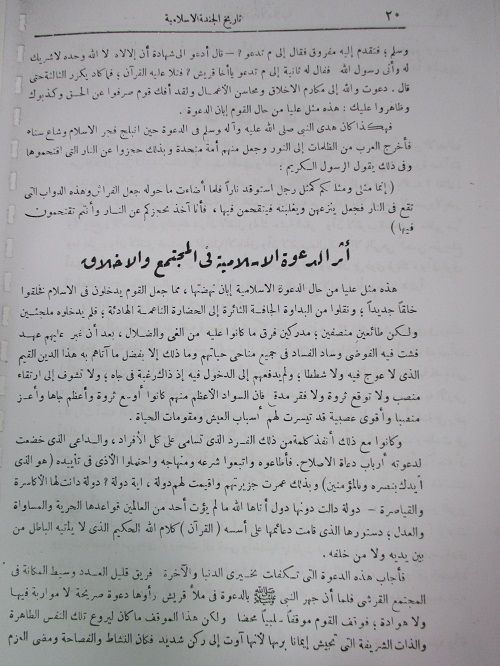 ٢٠ تاريخ الجندية الاسلامية
وسلم ؛ فتقدم إليه مفروق فقال إلى م تدعو ؟ — قال أدعو الى شهادة أن لا إله إلا الله وحده لا شريك
له وأنى رسول الله فقال له ثانية إلى م تدعو يا أخا قريش ؟ فتلا عليه القرآن ؛ فما كاد يكرر الثالثة حتى
قال . دعوت والله إلى مكارم الاخلاق ومحاسن الأعمال ولقد أفك قوم صرفوا عن الحق وكذبوك
وظاهروا عليك : هذه مثل عليا من حال القوم إبان الدعوة .
فهكذا كان هدى النبى صلى الله عليه وآله وسلم فى الدعوة حين انبلج فجر الاسلام وشاع سناه
فأخرج العرب من الظلمات إلى النور وجعل منهم أمة متحدة وبذلك حجزوا عن النار التى اقتحموها
وفى ذلك يقول الرسول الكريم :
( إنما مثلى ومثلكم كمثل رجل استوقد ناراً فلما أضاءت ما حوله جعل الفراش وهذه الدواب التى
تقع فى النار فجعل ينزعهن ويغلبنه فيتقحمن فيها ، فأنا آخذ بحجزكم عن النار وأنتم تقتحمون
فيها )
أثر الدعوة الاسلامية فى المجتمع والاخلاق
هذه مثل عليا من حال الدعوة الاسلامية إبان نهضتها ، مما جعل القوم يدخلون فى الاسلام فخلقوا
خلقاً جديداً ؛ ونقلوا من البداوة الجافة الثائرة إلى الحضارة الناعمة الهادئة ؛ فلم يدخلوه ملجئين
ولكن طائعين منصفين ؛ مدركين فرق ما كانوا عليه من الغى والضلال ، بعد أن غبر عليهم عهد
فشت فيه الفوضى وساد الفساد فى جميع مناحى حياتهم وما ذلك إلا بفضل ما آتاهم به هذا الدين القيم
الذى لا عوج فيه ولا شططا ؛ ولم يدفعهم إلى الدخول فيه إذ ذاك رغبة فى جاه ؛ ولا تشوف إلى ارتقاء
منصب ولا توقع ثروة ولا فقر مدقع فان السواد الأعظم منهم كانوا أوسع ثروة وأعظم جاها وأعز
منصبا وأقوى عصبية قد تيسرت لهم أسباب العيش ومقومات الحياة .
وكانوا مع ذلك أنفذ كلمة من ذلك الفرد الذى تسامى على كل الأفراد ، والداعى الذى خضعت
لدعوته أرباب دعاة الاصلاح . فأطاعوه واتبعوا شرعه ومنهاجه واحتملوا الأذى فى تأييده ( هو الذى
أيدك بنصره وبالمؤمنين ) وبذلك عمرت جزيرتهم واقيمت لهم دولة ، اية دولة ؟ دولة دانت لها الأكاسرة
والقياصرة — دولة دالت دونها دول أتاها الله ما لم يؤت أحد من العالمين قواعدها الحرية والمساواة
والعدل ؛ دستورها الذى قامت دعائمها على أسسه ( القرآن ) كلام الله الحكيم الذى لا يأتيه الباطل من
بين يديه ولا من خلفه .
فأجاب هذه الدعوة التى تكفلت بخيرى الدنيا والآخرة فريق قليل العدد وسيط المكانة فى
المجتمع القرشى فلما أن جهر النبى ﷺ بالدعوة فى ملأ قريش رأوها دعوة صريحة لا مواربة فيها
ولا هوادة ؛ فوقف القوم موقفاً سلبياً محضا ولكن هذا الموقف ما كان ليروع تلك النفس الطاهرة
والذات الشريفة التى تجيش إيمانا بربها لأنها آوت إلى ركن شديد فكان النشاط والفصاحة ومضى العزم